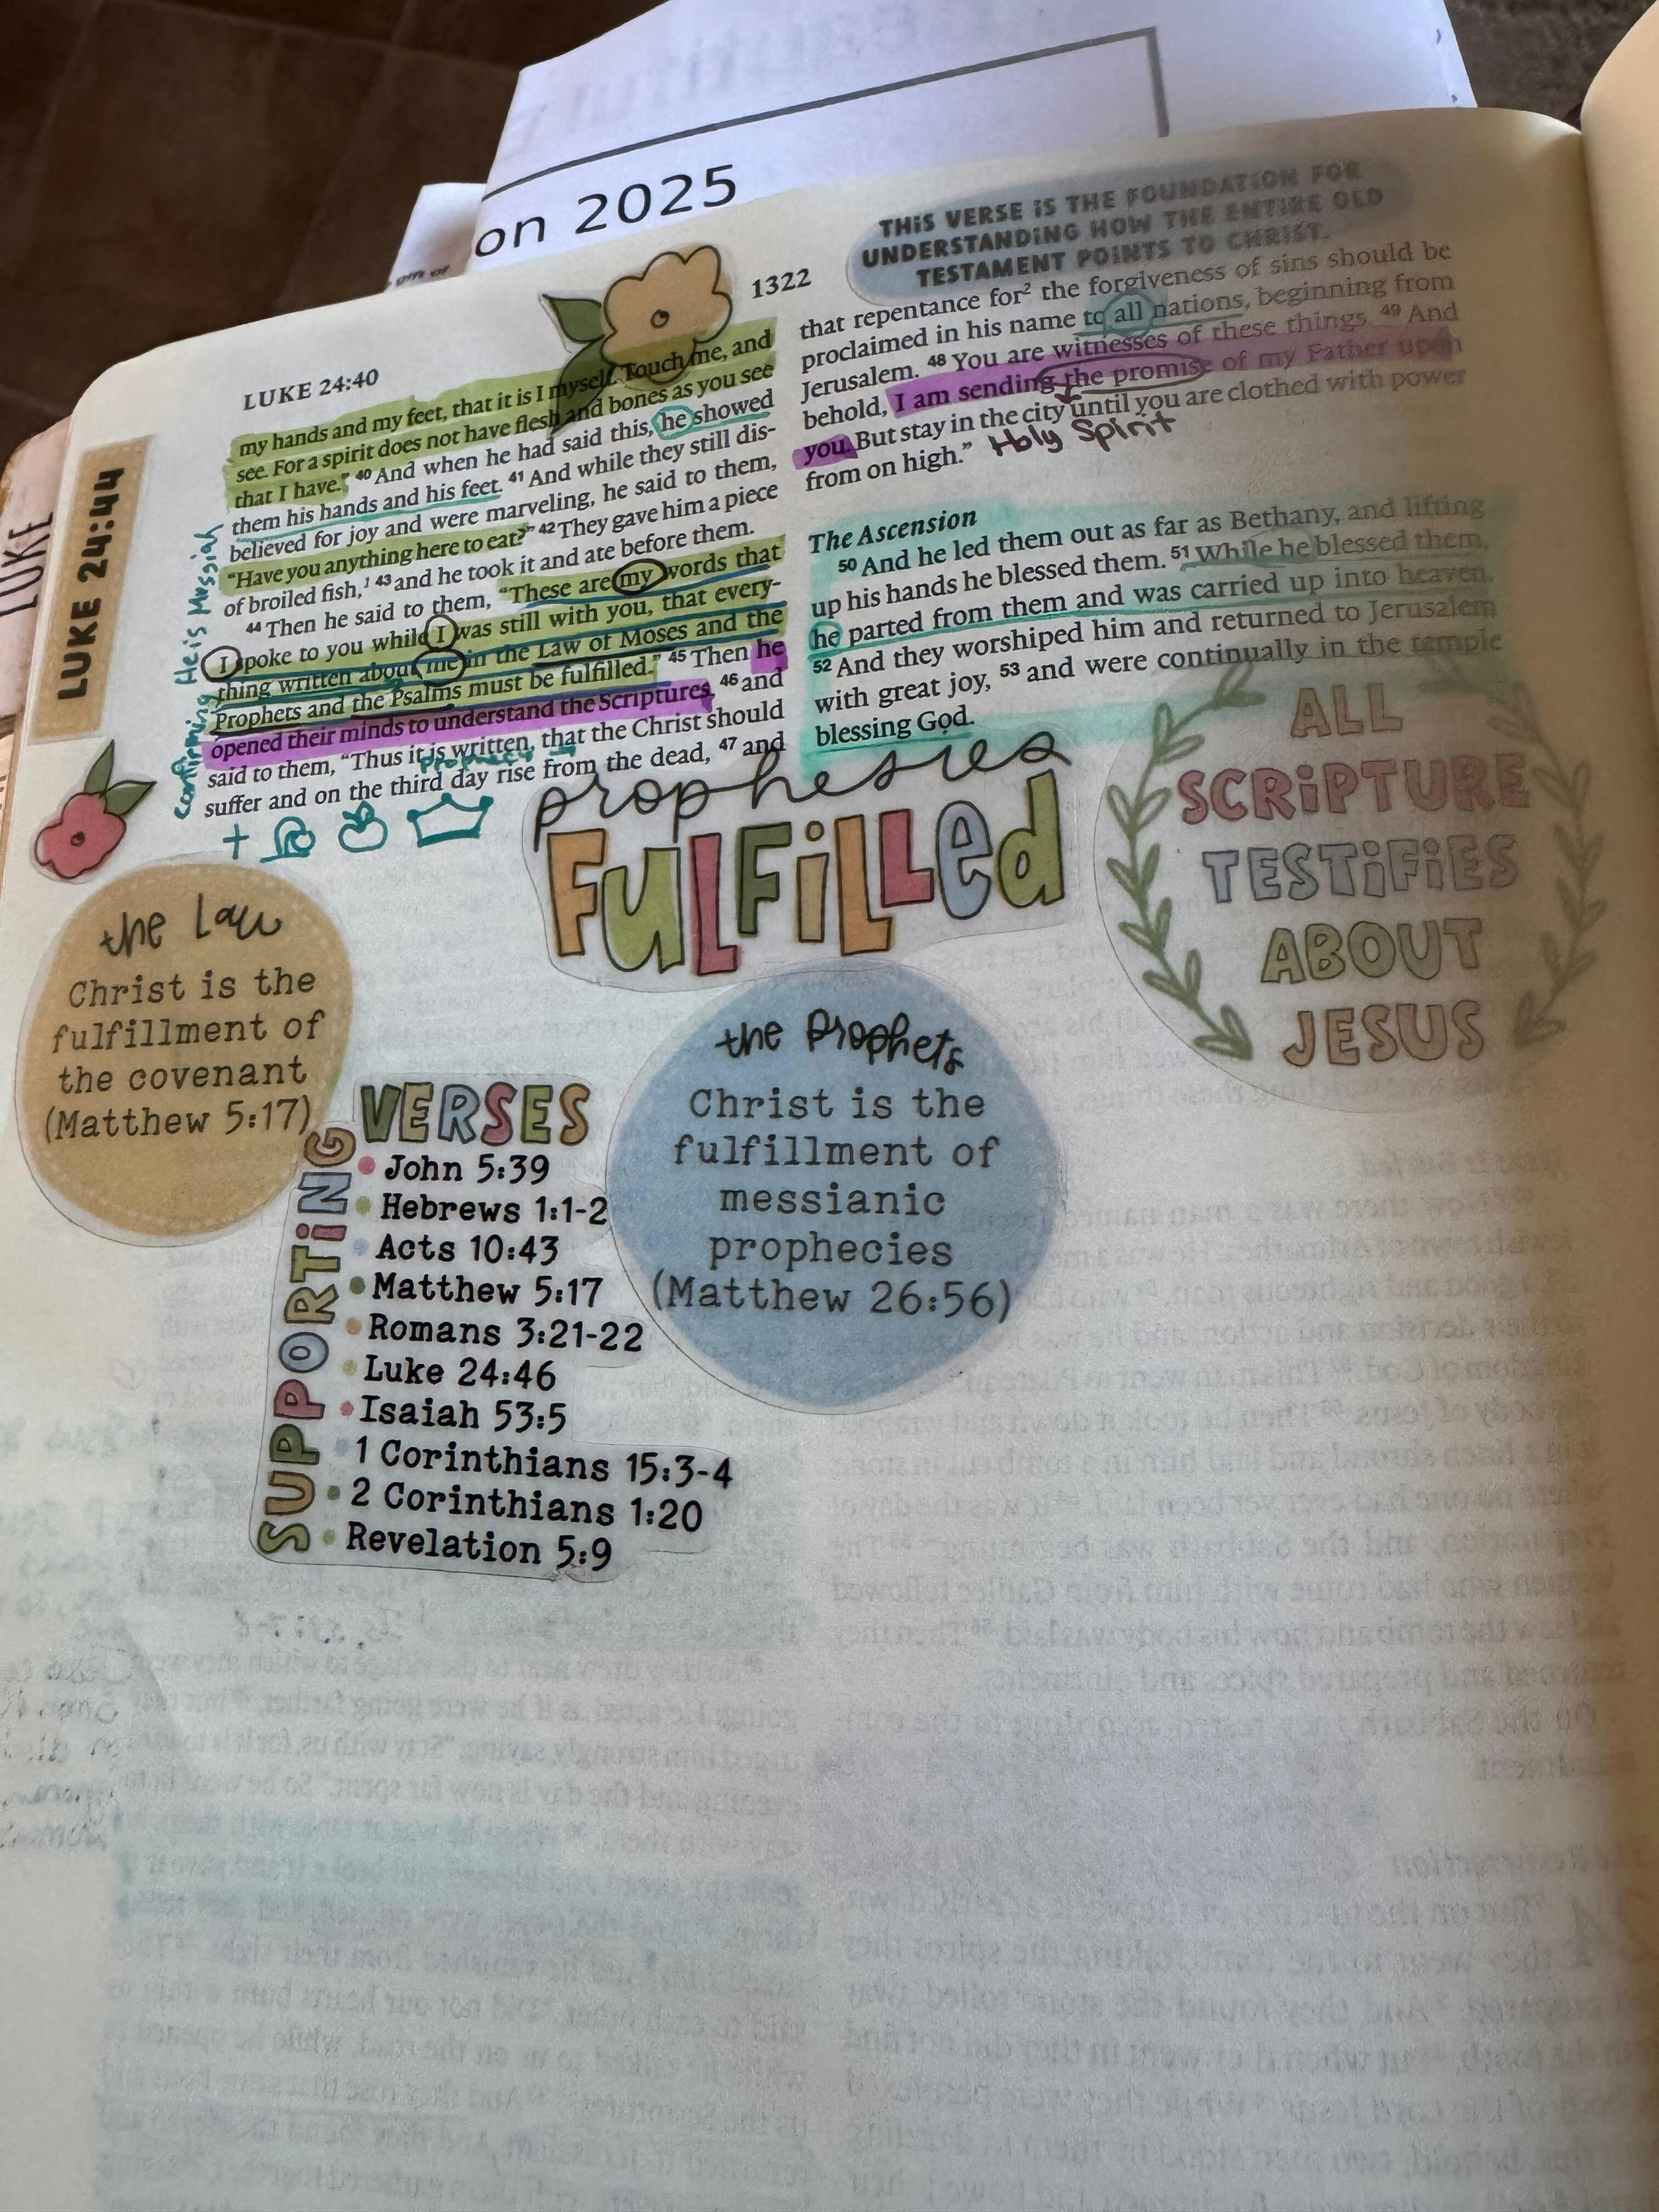 on 2025
LUKE 24:40
1322
my hands and my feet, that it is I myself. Touch me, and
see. For a spirit does not have flesh and bones as you see
that I have.” 40 And when he had said this, he showed
them his hands and his feet. 41 And while they still dis-
believed for joy and were marveling, he said to them,
“Have you anything here to eat?” 42 They gave him a piece
of broiled fish,1 43 and he took it and ate before them.
44 Then he said to them, “These are my words that
I spoke to you while I was still with you, that every-
thing written about me in the Law of Moses and the
Prophets and the Psalms must be fulfilled.” 45 Then he
opened their minds to understand the Scriptures, 46 and
said to them, “Thus it is written, that the Christ should
prophecy
suffer and on the third day rise from the dead, 47 and
LUKE
LUKE 24:44
Confirming He is Mussiah
THIS VERSE IS THE FOUNDATION FOR
UNDERSTANDING HOW THE ENTIRE OLD
TESTAMENT POINTS TO CHRIST.
that repentance for2 the forgiveness of sins should be
proclaimed in his name to all nations, beginning from
Jerusalem. 48 You are witnesses of these things. 49 And
behold, I am sending the promise of my Father upon
you. But stay in the city until you are clothed with power
from on high.” Holy Spirit
The Ascension
50 And he led them out as far as Bethany, and lifting
up his hands he blessed them. 51 While he blessed them,
he parted from them and was carried up into heaven.
52 And they worshiped him and returned to Jerusalem
with great joy, 53 and were continually in the temple
blessing God.
prophesies
FULFILLED
ALL
SCRIPTURE
TESTIFIES
ABOUT
JESUS
the Law
Christ is the
fulfillment of
the covenant
(Matthew 5:17)
SUPPORTING
VERSES
John 5:39
Hebrews 1:1-2
Acts 10:43
Matthew 5:17
Romans 3:21-22
Luke 24:46
Isaiah 53:5
1 Corinthians 15:3-4
2 Corinthians 1:20
Revelation 5:9
the Prophets
Christ is the
fulfillment of
messianic
prophecies
(Matthew 26:56)